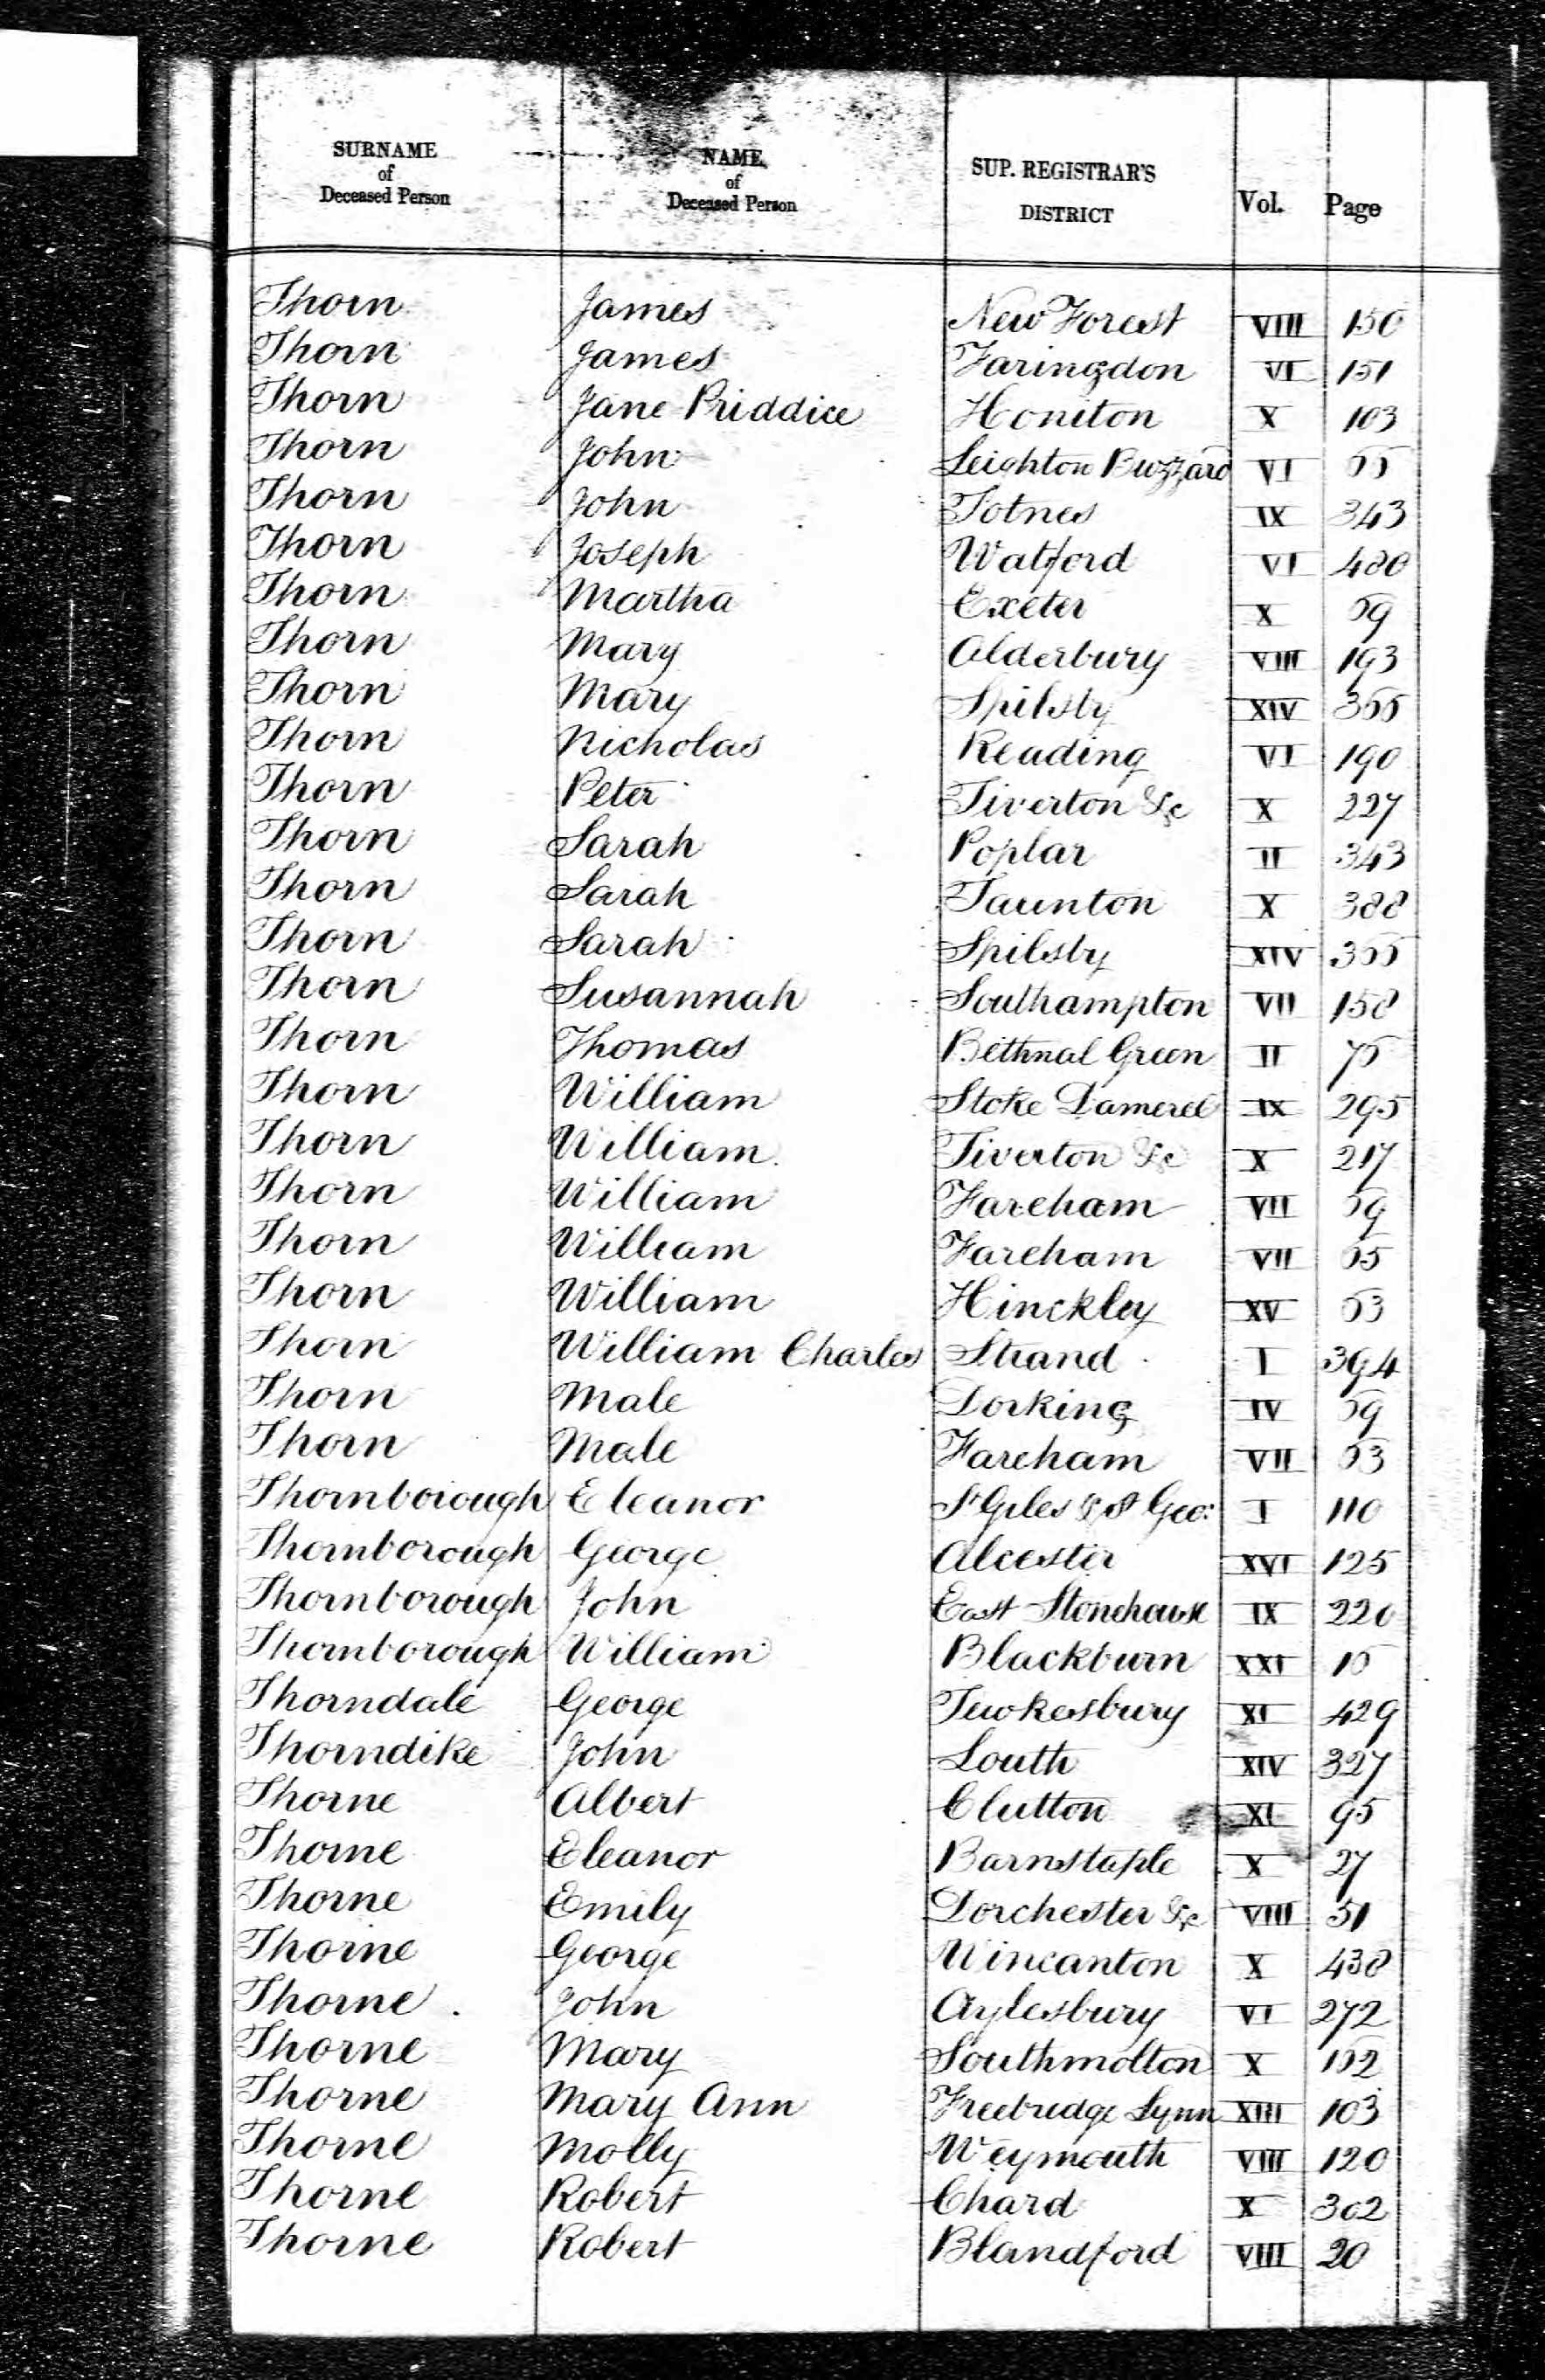 SURNAME of Deceased Person NAME of Deceased Person SUP. REGISTRAR'S DISTRICT Vol. Page
Thorn James New Forest VIII 150
Thorn James Faringdon VI 151
Thorn Jane Priddice Honiton X 103
Thorn John Leighton Buzzard VI 55
Thorn John Totnes IX 343
Thorn Joseph Watford VI 480
Thorn Martha Exeter X 59
Thorn Mary Alderbury VIII 193
Thorn Mary Spilsby XIV 355
Thorn Nicholas Reading VI 190
Thorn Peter Tiverton &c X 227
Thorn Sarah Poplar II 343
Thorn Sarah Taunton X 388
Thorn Sarah Spilsby XIV 355
Thorn Susannah Southampton VII 158
Thorn Thomas Bethnal Green II 75
Thorn William Stoke Damerel IX 295
Thorn William Tiverton &c X 217
Thorn William Fareham VII 59
Thorn William Fareham VII 55
Thorn William Hinckley XV 53
Thorn William Charles Strand I 394
Thorn Male Dorking IV 59
Thorn Male Fareham VII 53
Thornborough Eleanor St Giles & St Geo: I 110
Thornborough George Alcester XVI 125
Thornborough John East Stonehouse IX 220
Thornborough William Blackburn XXI 15
Thorndale George Tewkesbury XI 429
Thorndike John Louth XIV 327
Thorne Albert Clutton XI 95
Thorne Eleanor Barnstaple X 27
Thorne Emily Dorchester &c VIII 51
Thorne George Wincanton X 438
Thorne John Aylesbury VI 272
Thorne Mary Southmolton X 152
Thorne Mary Ann Freebridge Lynn XIII 103
Thorne Molly Weymouth VIII 120
Thorne Robert Chard X 302
Thorne Robert Blandford VIII 20